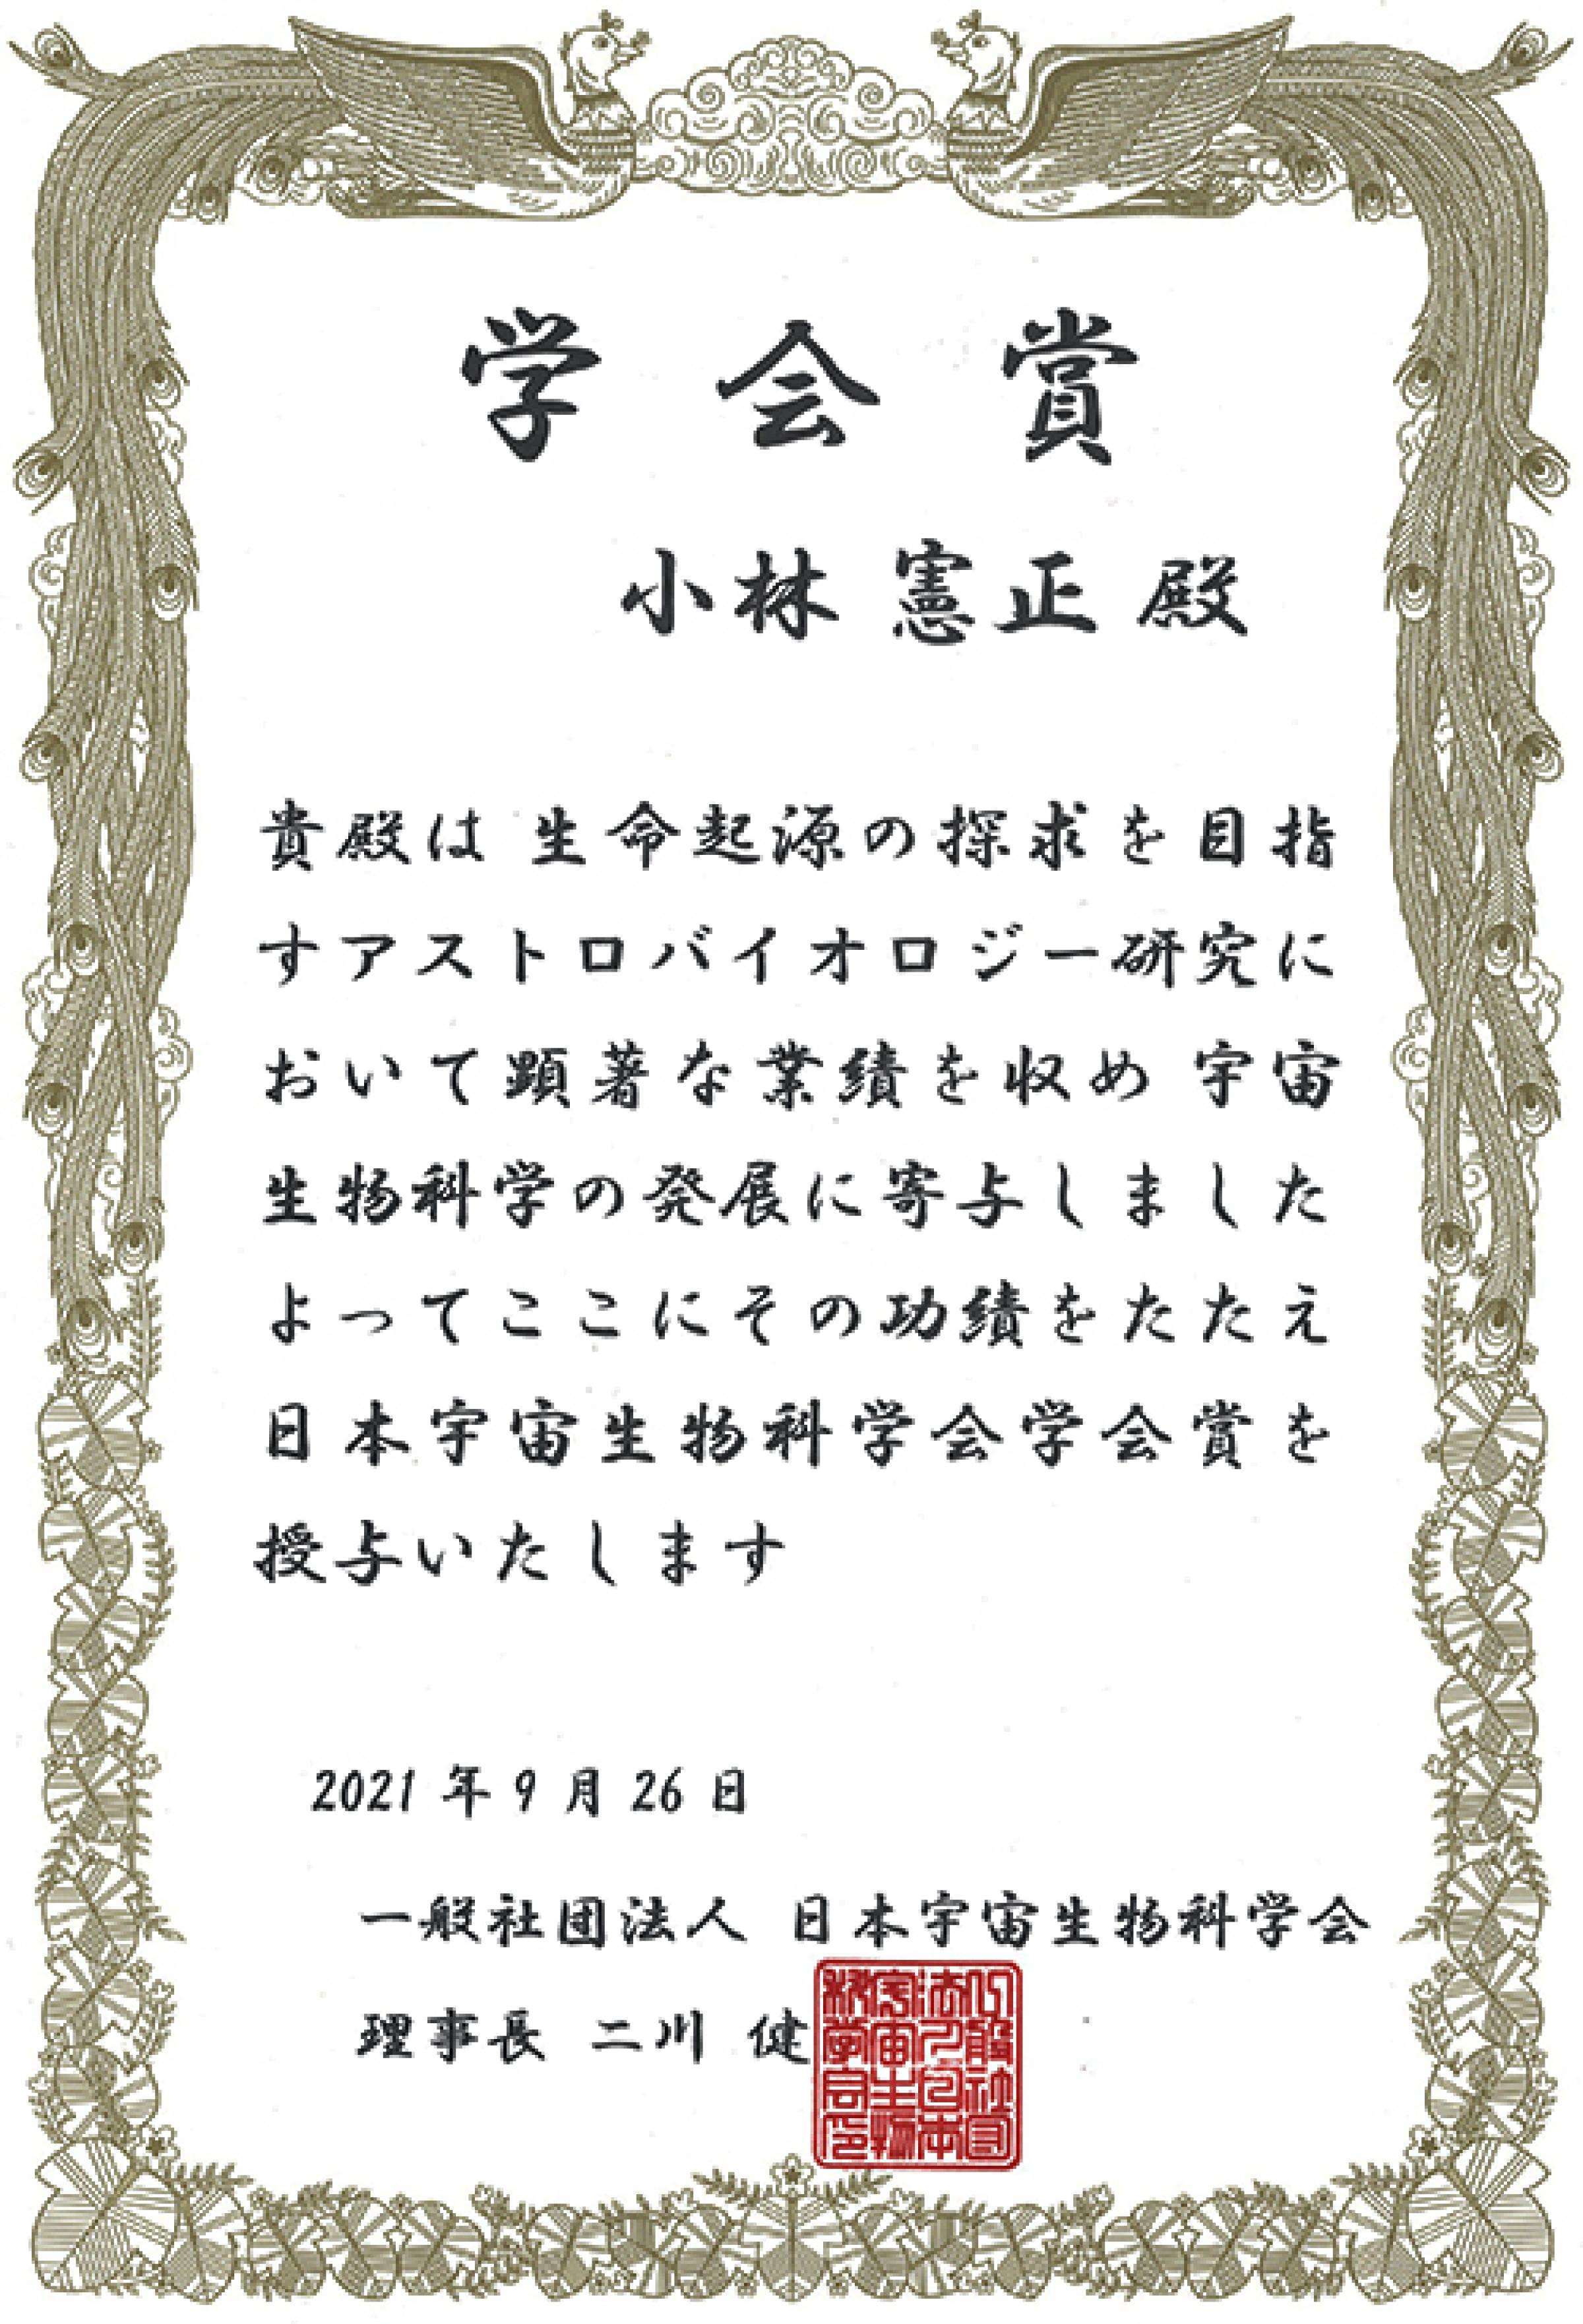 学会賞
小林 憲正 殿
貴殿は 生命起源の探求を目指
すアストロバイオロジー研究に
おいて顕著な業績を収め 宇宙
生物科学の発展に寄与しました
よってここにその功績をたたえ
日本宇宙生物科学会学会賞を
授与いたします
2021 年 9 月 26 日
一般社団法人 日本宇宙生物科学会
理事長 二川 健
一般社団
法人日本
宇宙生物
科学会印